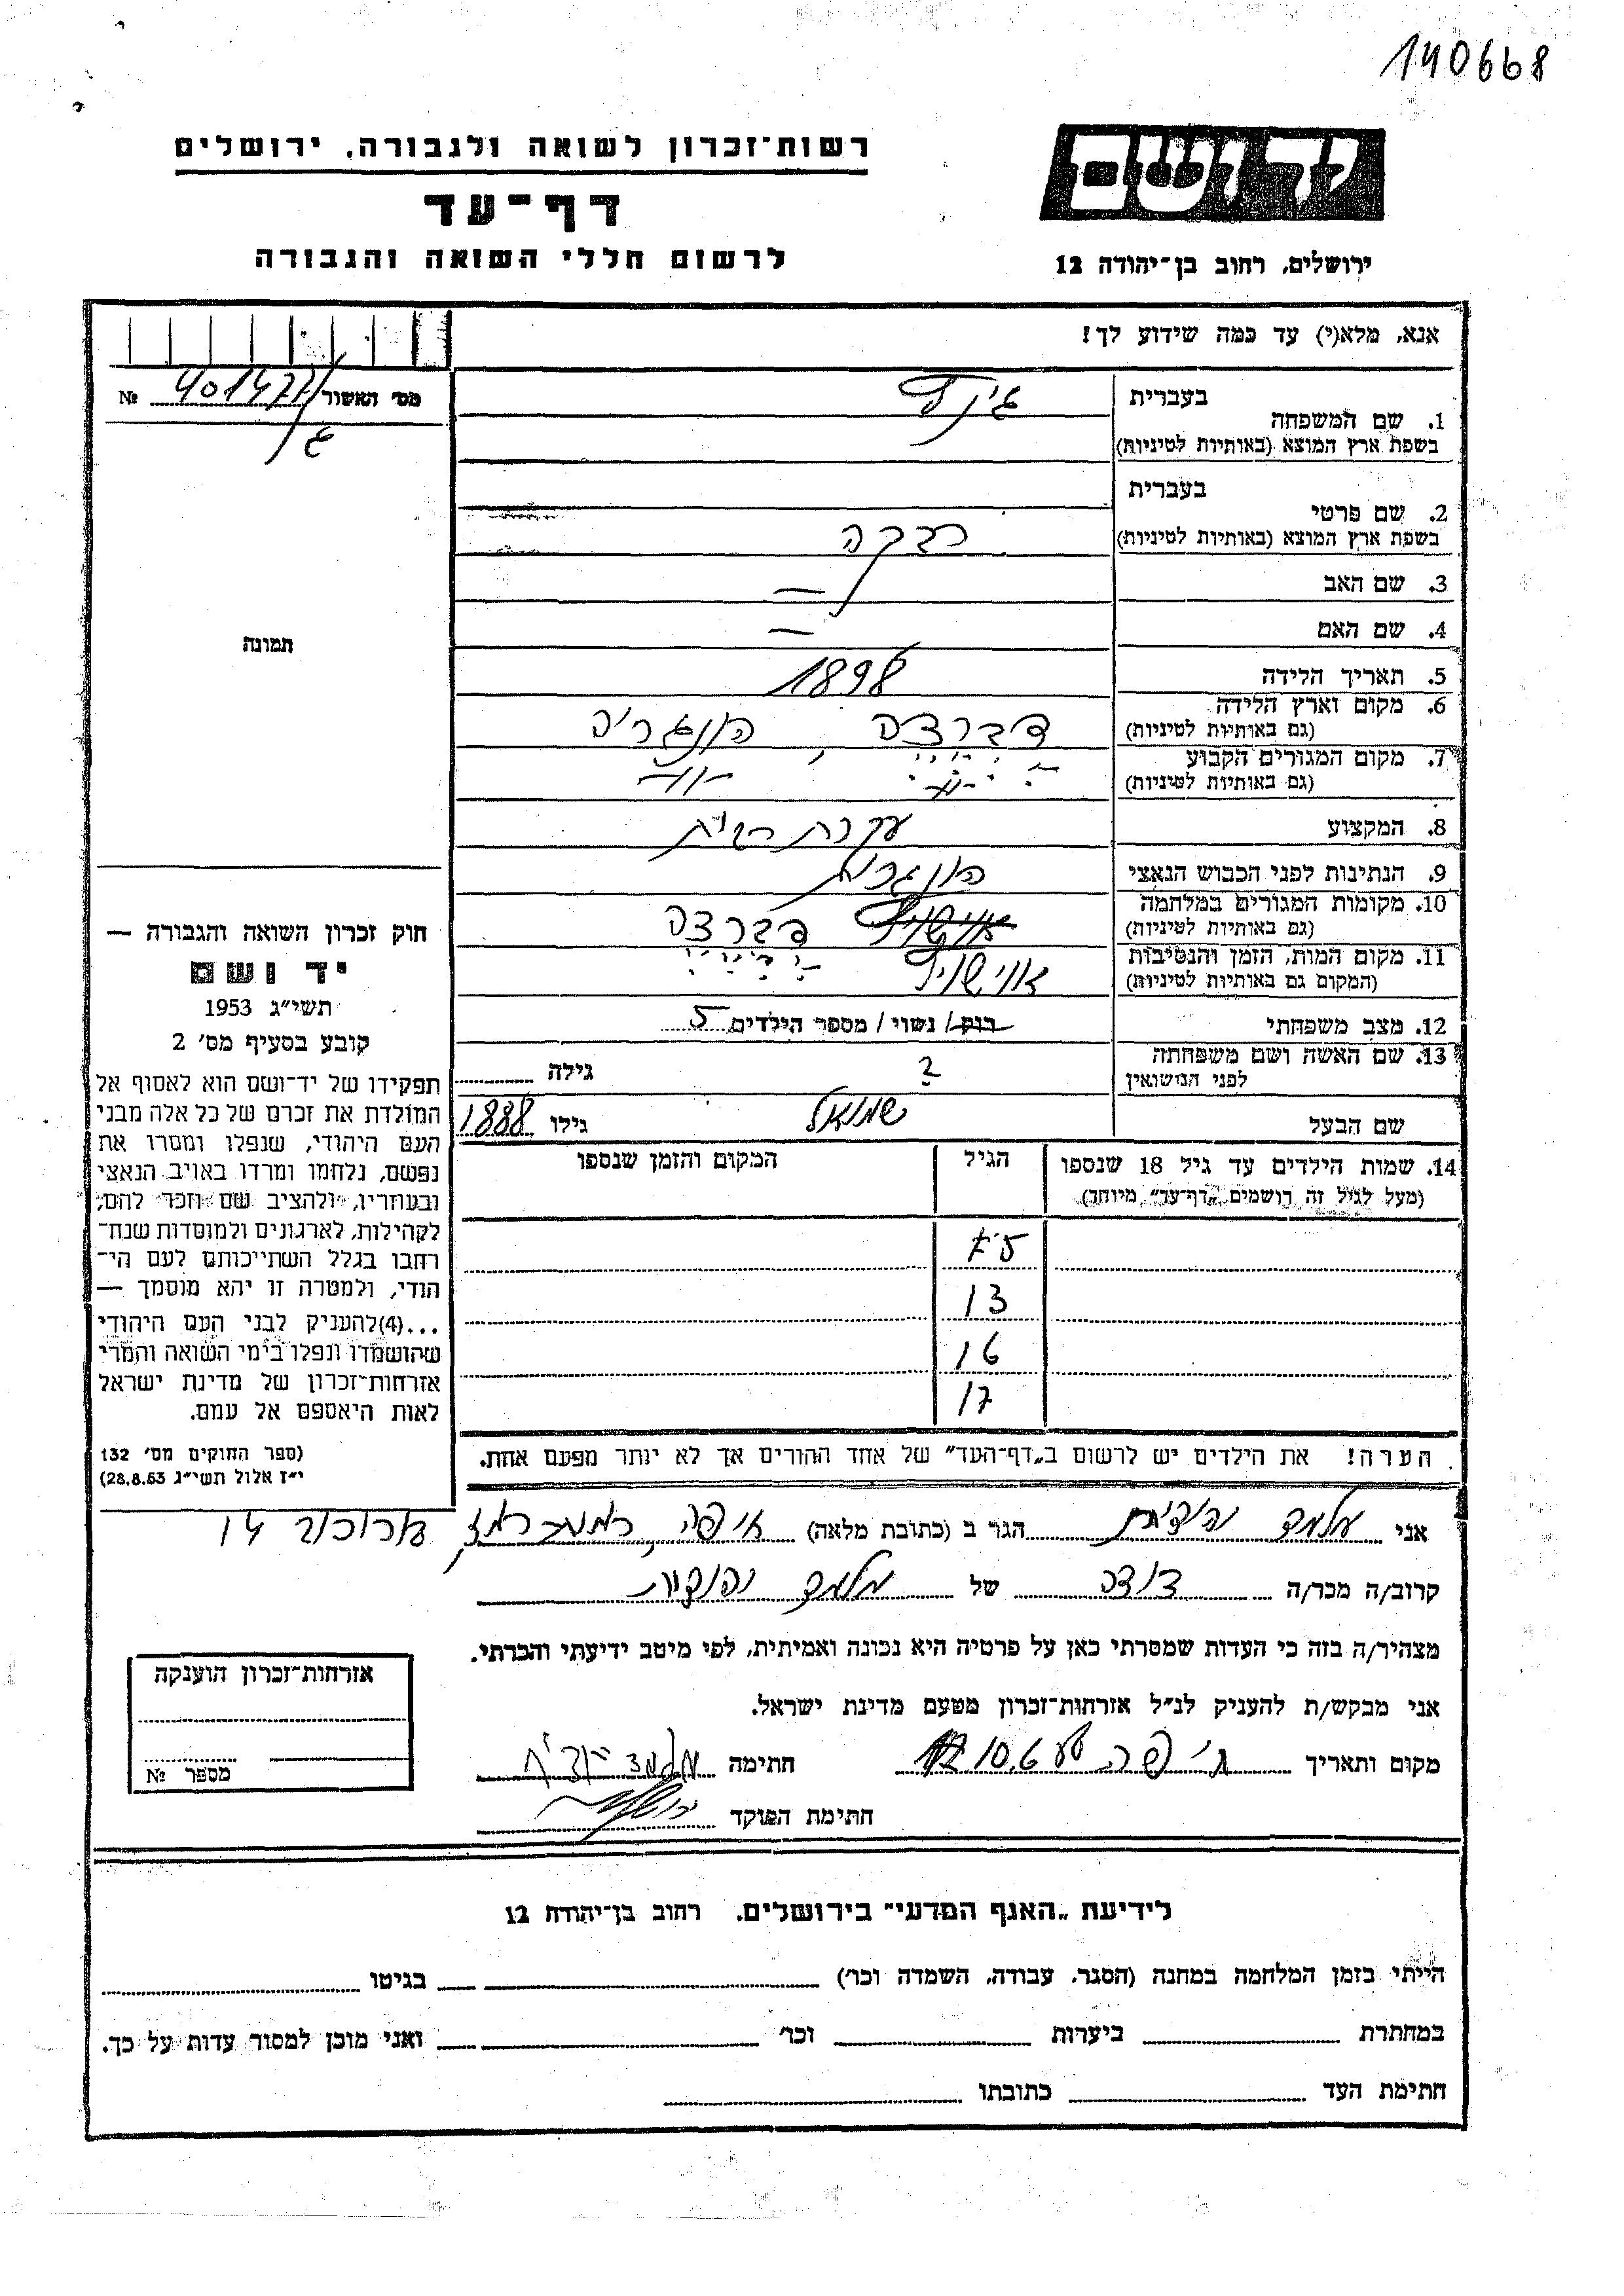 140668
רשות־זכרון לשואה ולגבורה, ירושלים
דף־עד
לרשום חללי השואה והגבורה
ידושם
ירושלים, רחוב בן־יהודה 12
אנא, מלא(י) עד כמה שידוע לך!
מס' האשור 401477 №
1. שם המשפחה
בעברית
בשפת ארץ המוצא (באותיות לטיניות)
2. שם פרטי
בעברית
בשפת ארץ המוצא (באותיות לטיניות) רבקה
3. שם האב —
4. שם האם —
5. תאריך הלידה 1898
6. מקום וארץ הלידה דברצה, הונגריה
(גם באותיות לטיניות)
7. מקום המגורים הקבוע
(גם באותיות לטיניות)
8. המקצוע עקרת בית
9. הנתינות לפני הכבוש הנאצי הונגרית
10. מקומות המגורים במלחמה דברצה
(גם באותיות לטיניות)
11. מקום המות, הזמן והנסיבות אוישויץ
(המקום גם באותיות לטיניות)
12. מצב משפחתי רווק/ נשוי/ מספר הילדים 5
13. שם האשה ושם משפחתה
לפני הנשואין ? גילה
שם הבעל שמואל גילו 1888
14. שמות הילדים עד גיל 18 שנספו הגיל המקום והזמן שנספו
(מעל לגיל זה רושמים „דף־עד" מיוחד)
13
16
17
הערה! את הילדים יש לרשום ב„דף־העד" של אחד ההורים אך לא יותר מפעם אחת.
תמונה
חוק זכרון השואה והגבורה —
יד ושם
תשי"ג 1953
קובע בסעיף מס' 2
תפקידו של יד־ושם הוא לאסוף אל
המולדת את זכרם של כל אלה מבני
העם היהודי, שנפלו ומסרו את
נפשם, נלחמו ומרדו באויב הנאצי
ובעוזריו, ולהציב שם וזכר להם,
לקהילות, לארגונים ולמוסדות שנח־
רבו בגלל השתייכותם לעם הי־
הודי, ולמטרה זו יהא מוסמך —
...(4)להעניק לבני העם היהודי
שהושמדו ונפלו בימי השואה והמרי
אזרחות־זכרון של מדינת ישראל
לאות היאספם אל עמם.
(ספר החוקים מס' 132
י"ז אלול תשי"ג 28.8.53)
אני מלמד יהודית הגר ב (כתובת מלאה) חיפה, רמת רמז, 14
קרוב/ה מכר/ה דודה של מלמד יהודית
מצהיר/ה בזה כי העדות שמסרתי כאן על פרטיה היא נכונה ואמיתית, לפי מיטב ידיעתי והכרתי.
אני מבקש/ת להעניק לנ"ל אזרחות־זכרון מטעם מדינת ישראל.
מקום ותאריך חיפה 10.6 חתימה מלמד יהודית
חתימת הפוקד
אזרחות־זכרון הוענקה
מספר №
לידיעת „האגף המדעי" בירושלים, רחוב בן־יהודה 12
הייתי בזמן המלחמה במחנה (הסגר, עבודה, השמדה וכו') בגיטו
במחתרת ביערות וכו' ואני מוכן למסור עדות על כך.
חתימת העד כתובתו